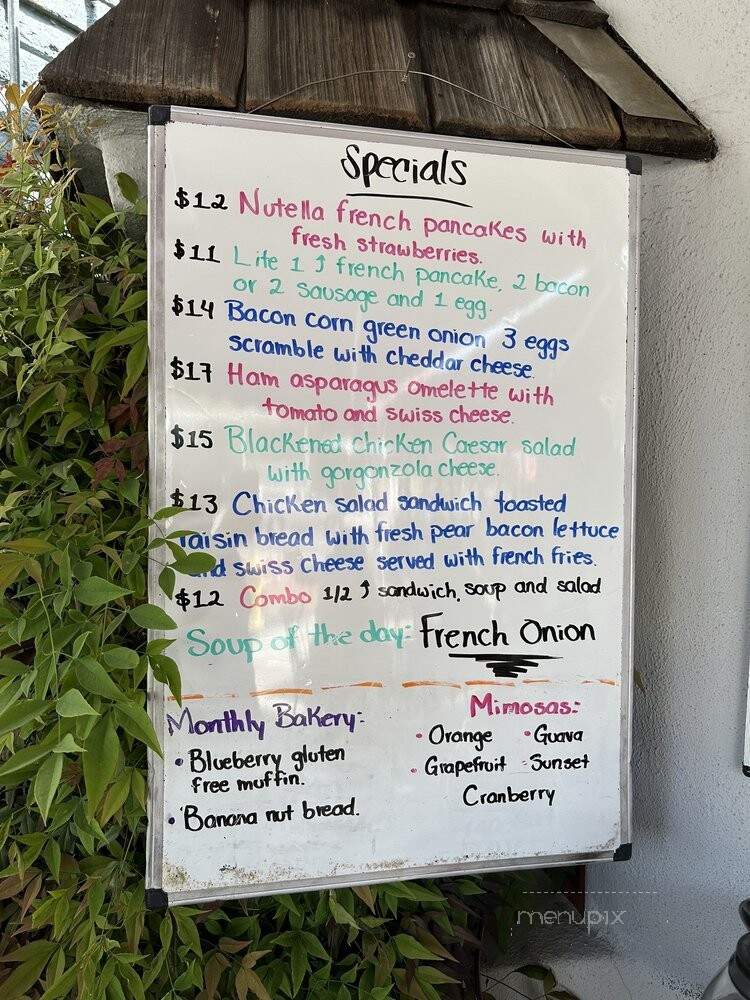 Specials
$12 Nutella french pancakes with
fresh strawberries.
$11 Lite 1 ↑ french pancake, 2 bacon
or 2 sausage and 1 egg.
$14 Bacon corn green onion 3 eggs
scramble with cheddar cheese.
$17 Ham asparagus omelette with
tomato and swiss cheese.
$15 Blackened chicken Caesar salad
with gorgonzola cheese.
$13 Chicken salad sandwich toasted
raisin bread with fresh pear bacon lettuce
and swiss cheese served with french fries.
$12 Combo 1/2 ↑ sandwich, soup and salad
Soup of the day: French Onion
Monthly Bakery:
• Blueberry gluten
free muffin.
• Banana nut bread.
Mimosas:
• Orange • Guava
• Grapefruit • Sunset
Cranberry
menupix